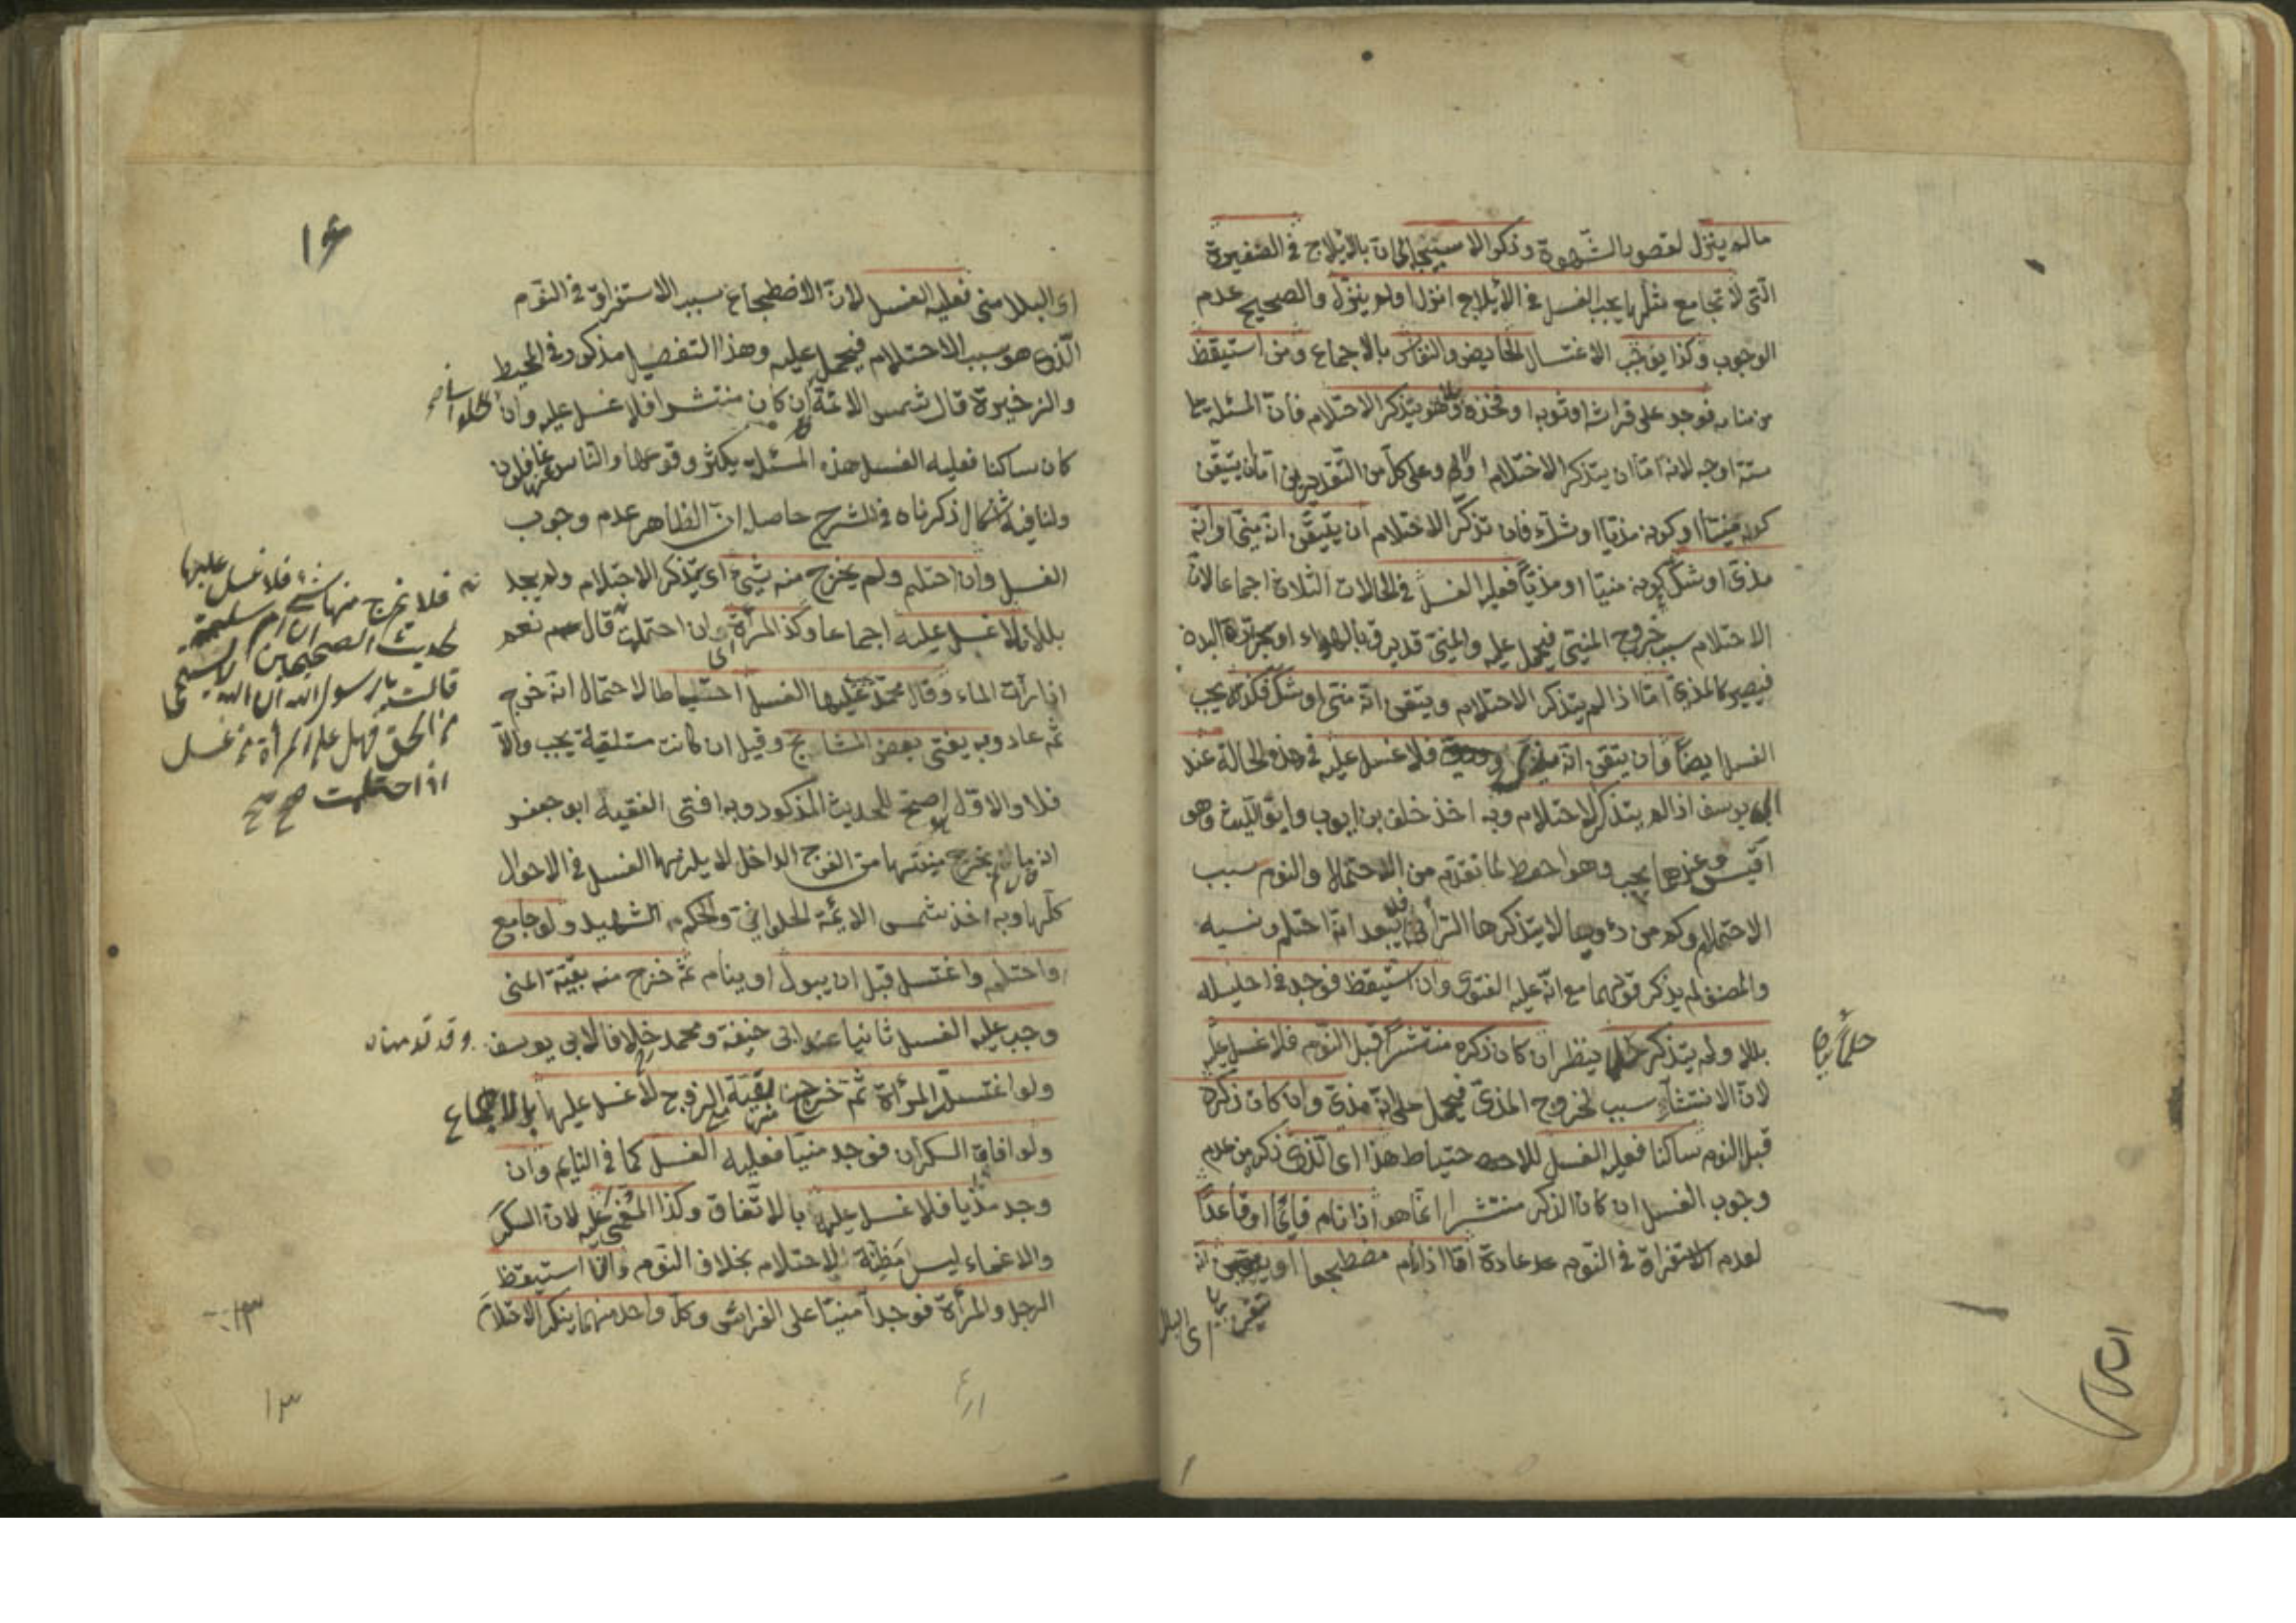 مالم ينزل لقصور الشهوة وذكر الاسبيجابي ان بالايلاج في الصغيرة
التي لا تجامع مثلها يجب الغسل في الايلاج انزل اولم ينزل والصحيح عدم
الوجوب وكذا يوجب الاغتسال الحايض والنفاس بالاجماع ومن استيقظ
من منامه فوجد على فراشه او ثوبه او فخذه بللا وهو يتذكر الاحتلام فان المسئلة
ستة اوجه لانه اما ان يتذكر الاحتلام اولا وعلى كل من التقديرين اما ان يتيقن
كونه منيّا او كونه مذيا او شك فان تذكّر الاحتلام ان يتيقن انه منيّ او انه
مذى او شك كونه منيّا او مذيّا فعليه الغسل في الحالات الثلاث اجماعا لان
الاحتلام سبب خروج المنيّ فيحمل عليه والمنيّ قد يرق بالهواء او بحرارة البدن
فيصير كالمذيّ امّا اذا لم يتذكر الاحتلام ويتيقن انّه منيّ او شك فكذلك يجب
الغسل ايضًا وان يتيقن انّه مذي فلا غسل عليه في هذه الحالة عند
ابي يوسف اذا لم يتذكر الاحتلام وبه اخذ خلف بن ايوب وابو الليث وهو
اقيس وعندهما يجب وهو احوط لما تقدّم من الاحتمال والنوم سبب
الاحتلام وكم من رؤيا لا يتذكرها الرائي فلا يبعد انّه احتلم ونسيه
والمصنف لم يذكر قولهما مع انّ عليه الفتوى وان استيقظ فوجد في احليله
بللا ولم يتذكر حلما ينظر ان كان ذكره منتشرا قبل النوم فلا غسل عليه
حلما
لانّ الانتشار سبب لخروج المذيّ فيحمل على انّه مذيّ وان كان ذكره
قبل النوم ساكنا فعليه الغسل للاحتياط هذا اى الّذى ذكر من عدم
وجوب الغسل ان كان الذكر منتشرا انّما هو اذا نام قايمًا او قاعدًا
لعدم الاستغراق في النّوم عادة امّا اذا نام مضطجعا او يتيقن انّه
تيقن
اى البلل
١٤
اى البلل منى فعليه الغسل لانّ الاضطجاع سبب الاستغراق في النّوم
الّذى هو سبب الاحتلام فيحمل عليه وهذا التفصيل مذكور في المحيط
والذخيرة قال شمس الائمّة الحلوانى ان كان منتشرا فلا غسل عليه وان
كان ساكنا فعليه الغسل هذه المسئلة يكثر وقوعها والناس عنها غافلون
ولنا فيه اشكال ذكرناه في الشرح حاصله انّ الظاهر عدم وجوب
الغسل وان احتلم ولم يخرج منه شيئ اى يتذكر الاحتلام ولم يجد
بللا لا غسل عليه اجماعا وكذا المرأة ان احتلمت قال نعم
اذا رأت الماء وقال محمّد عليها الغسل احتياطا لاحتمال انه خرج
ثم عاد وبه يفتى بعض المشايخ وقيل ان كانت مستلقية يجب والّا
فلا والاول اصحّ للحديث المذكور وبه افتى الفقيه ابو جعفر
ان مالم يخرج منيّها من الفرج الداخل لا يلزمها الغسل في الاحوال
كلّها وبه اخذ شمس الائمّة الحلوانى والحاكم الشهيد ولو جامع
او احتلم واغتسل قبل ان يبول او ينام ثمّ خرج منه بقيّة المنى
وجب عليه الغسل ثانيا عند ابى حنيفة ومحمد خلافا لابى يوسف وقد قدمناه
ولو اغتسلت المرأة ثمّ خرج منها بقيّة منى الزوج لا غسل عليها بالاجماع
ولو افاق السكران فوجد منيّا فعليه الغسل كما في النايم وان
وجد مذيا فلا غسل عليه بالاتّفاق وكذا المغمى عليه لان السكر
والاغماء ليس مظنّة للاحتلام بخلاف النّوم واذا استيقظ
الرجل والمرأة فوجدا منيّا على الفراش وكلّ واحد منهما ينكر الاحتلام
فلا تخرج منها شئ فلا غسل عليها
لحديث الصحيحين ان ام سليم
قالت يا رسول الله ان الله لا يستحي
من الحق فهل على المرأة من غسل
اذا احتلمت صح صح
١٣